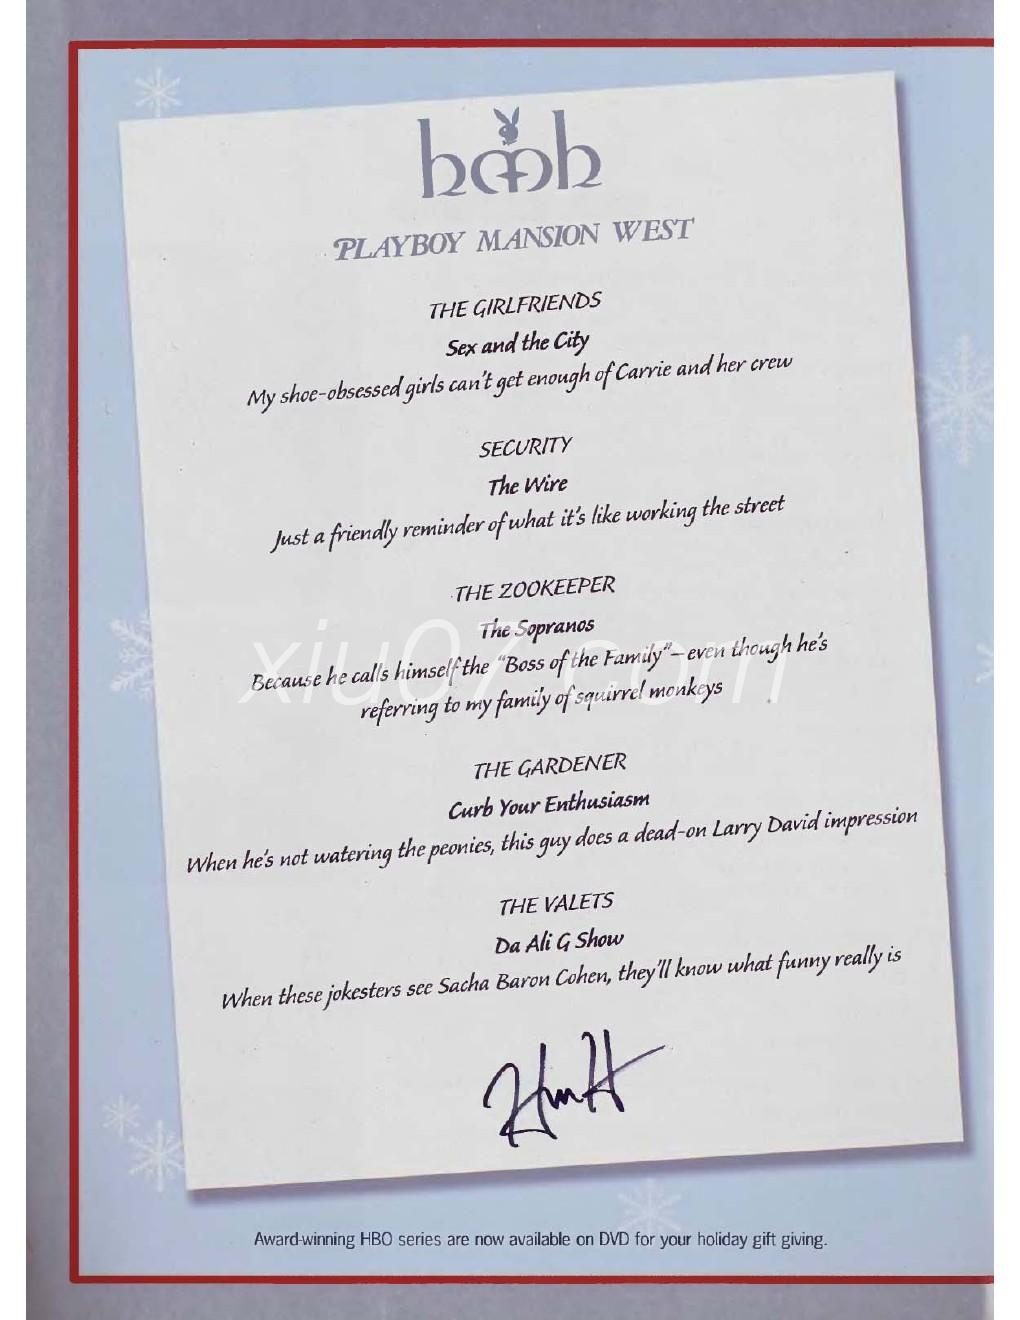 hmh
PLAYBOY MANSION WEST
THE GIRLFRIENDS
Sex and the City
My shoe-obsessed girls can't get enough of Carrie and her crew
SECURITY
The Wire
Just a friendly reminder of what it's like working the street
THE ZOOKEEPER
The Sopranos
Because he calls himself the "Boss of the Family"—even though he's
referring to my family of squirrel monkeys
xiu07.com
THE GARDENER
Curb Your Enthusiasm
When he's not watering the peonies, this guy does a dead-on Larry David impression
THE VALETS
Da Ali G Show
When these jokesters see Sacha Baron Cohen, they'll know what funny really is
Award-winning HBO series are now available on DVD for your holiday gift giving.